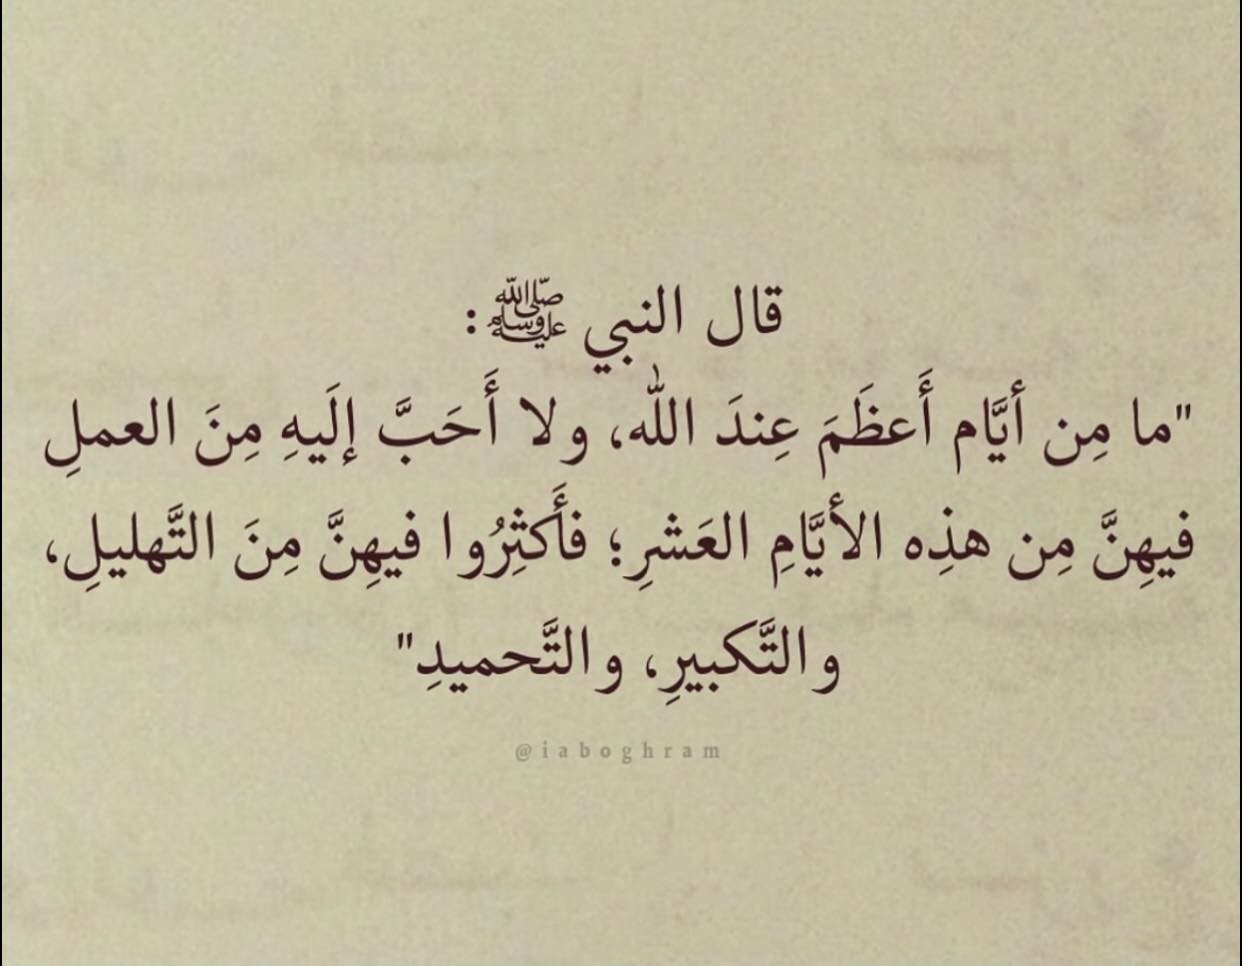 قال النبي ﷺ:
"ما مِن أيَّام أَعظَمَ عِندَ الله، ولا أَحَبَّ إلَيهِ مِنَ العملِ
فيهِنَّ مِن هذِه الأيَّامِ العَشرِ؛ فأَكثِرُوا فيهِنَّ مِنَ التَّهليلِ،
والتَّكبيرِ، والتَّحميدِ"
@iaboghram